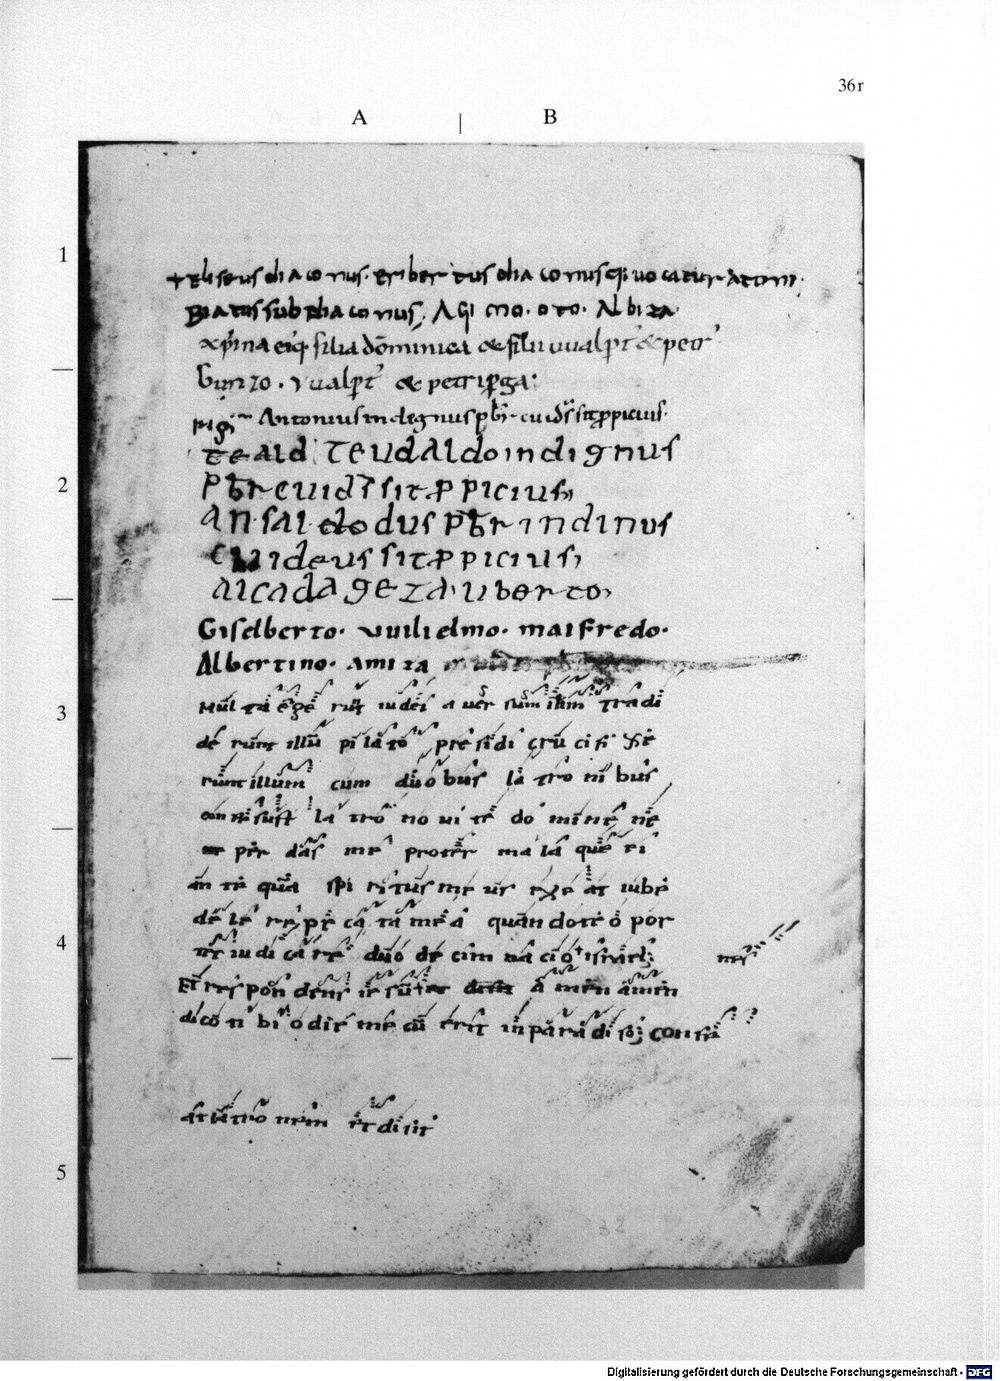 36r
A | B
1
+ Eliseus diaconus. eriber tus diaconus q; uocatur Atoni.
Biatus subdiaconus. Agi mo. oto. Albiza
xp̄ina eiq; filia dōminica & filii uualp̄t & petr
Gunzo. Vualp̄t & petri
Antonius indegnus p̄br cui d̄s sit ꝓpicius.
2
teald teudaldo indignus
p̄br cui d̄s sit ꝓ picius
Ansal do dus p̄br indinus
cui deus sit ꝓ picius
Alcada geza uberto
Giselberto. Vuilielmo. maifredo.
Albertino. Amiza
3
Mul ta ege runt iudei a uer sum illum tradi
de runt illū pi la to presidi cru ci fi xe
runt illum cum duo bus la tro ni bus
la tro no ui te do mi ne ne
per das me propter ma la que fe ci
an te qua spi ri tus me us exe at iube
de le re pec ca ta me a quando te o por
4
ter iu di ca re duo de cim na cio isrł; nes
Et res pon dens ie sus a men amen
dico ti bi o die me cū eris in paradi so; con fi
at latro nem et di sit
5
Digitalisierung gefördert durch die Deutsche Forschungsgemeinschaft - DFG